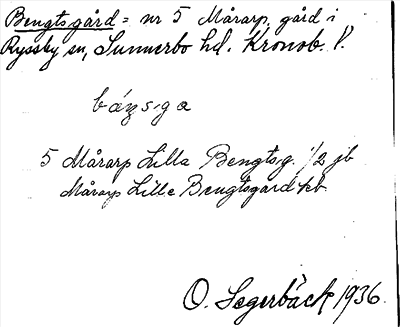 Bengtsgård = nr 5 Mårarp, gård i
Ryssby sn, Sunnerbo hd. Kronob. l.
báŋsga
5 Mårarp Lilla Bengtsg. 1/2 jb
Mårarp Lille Bengtsgård kb
O. Segerbäck 1936.